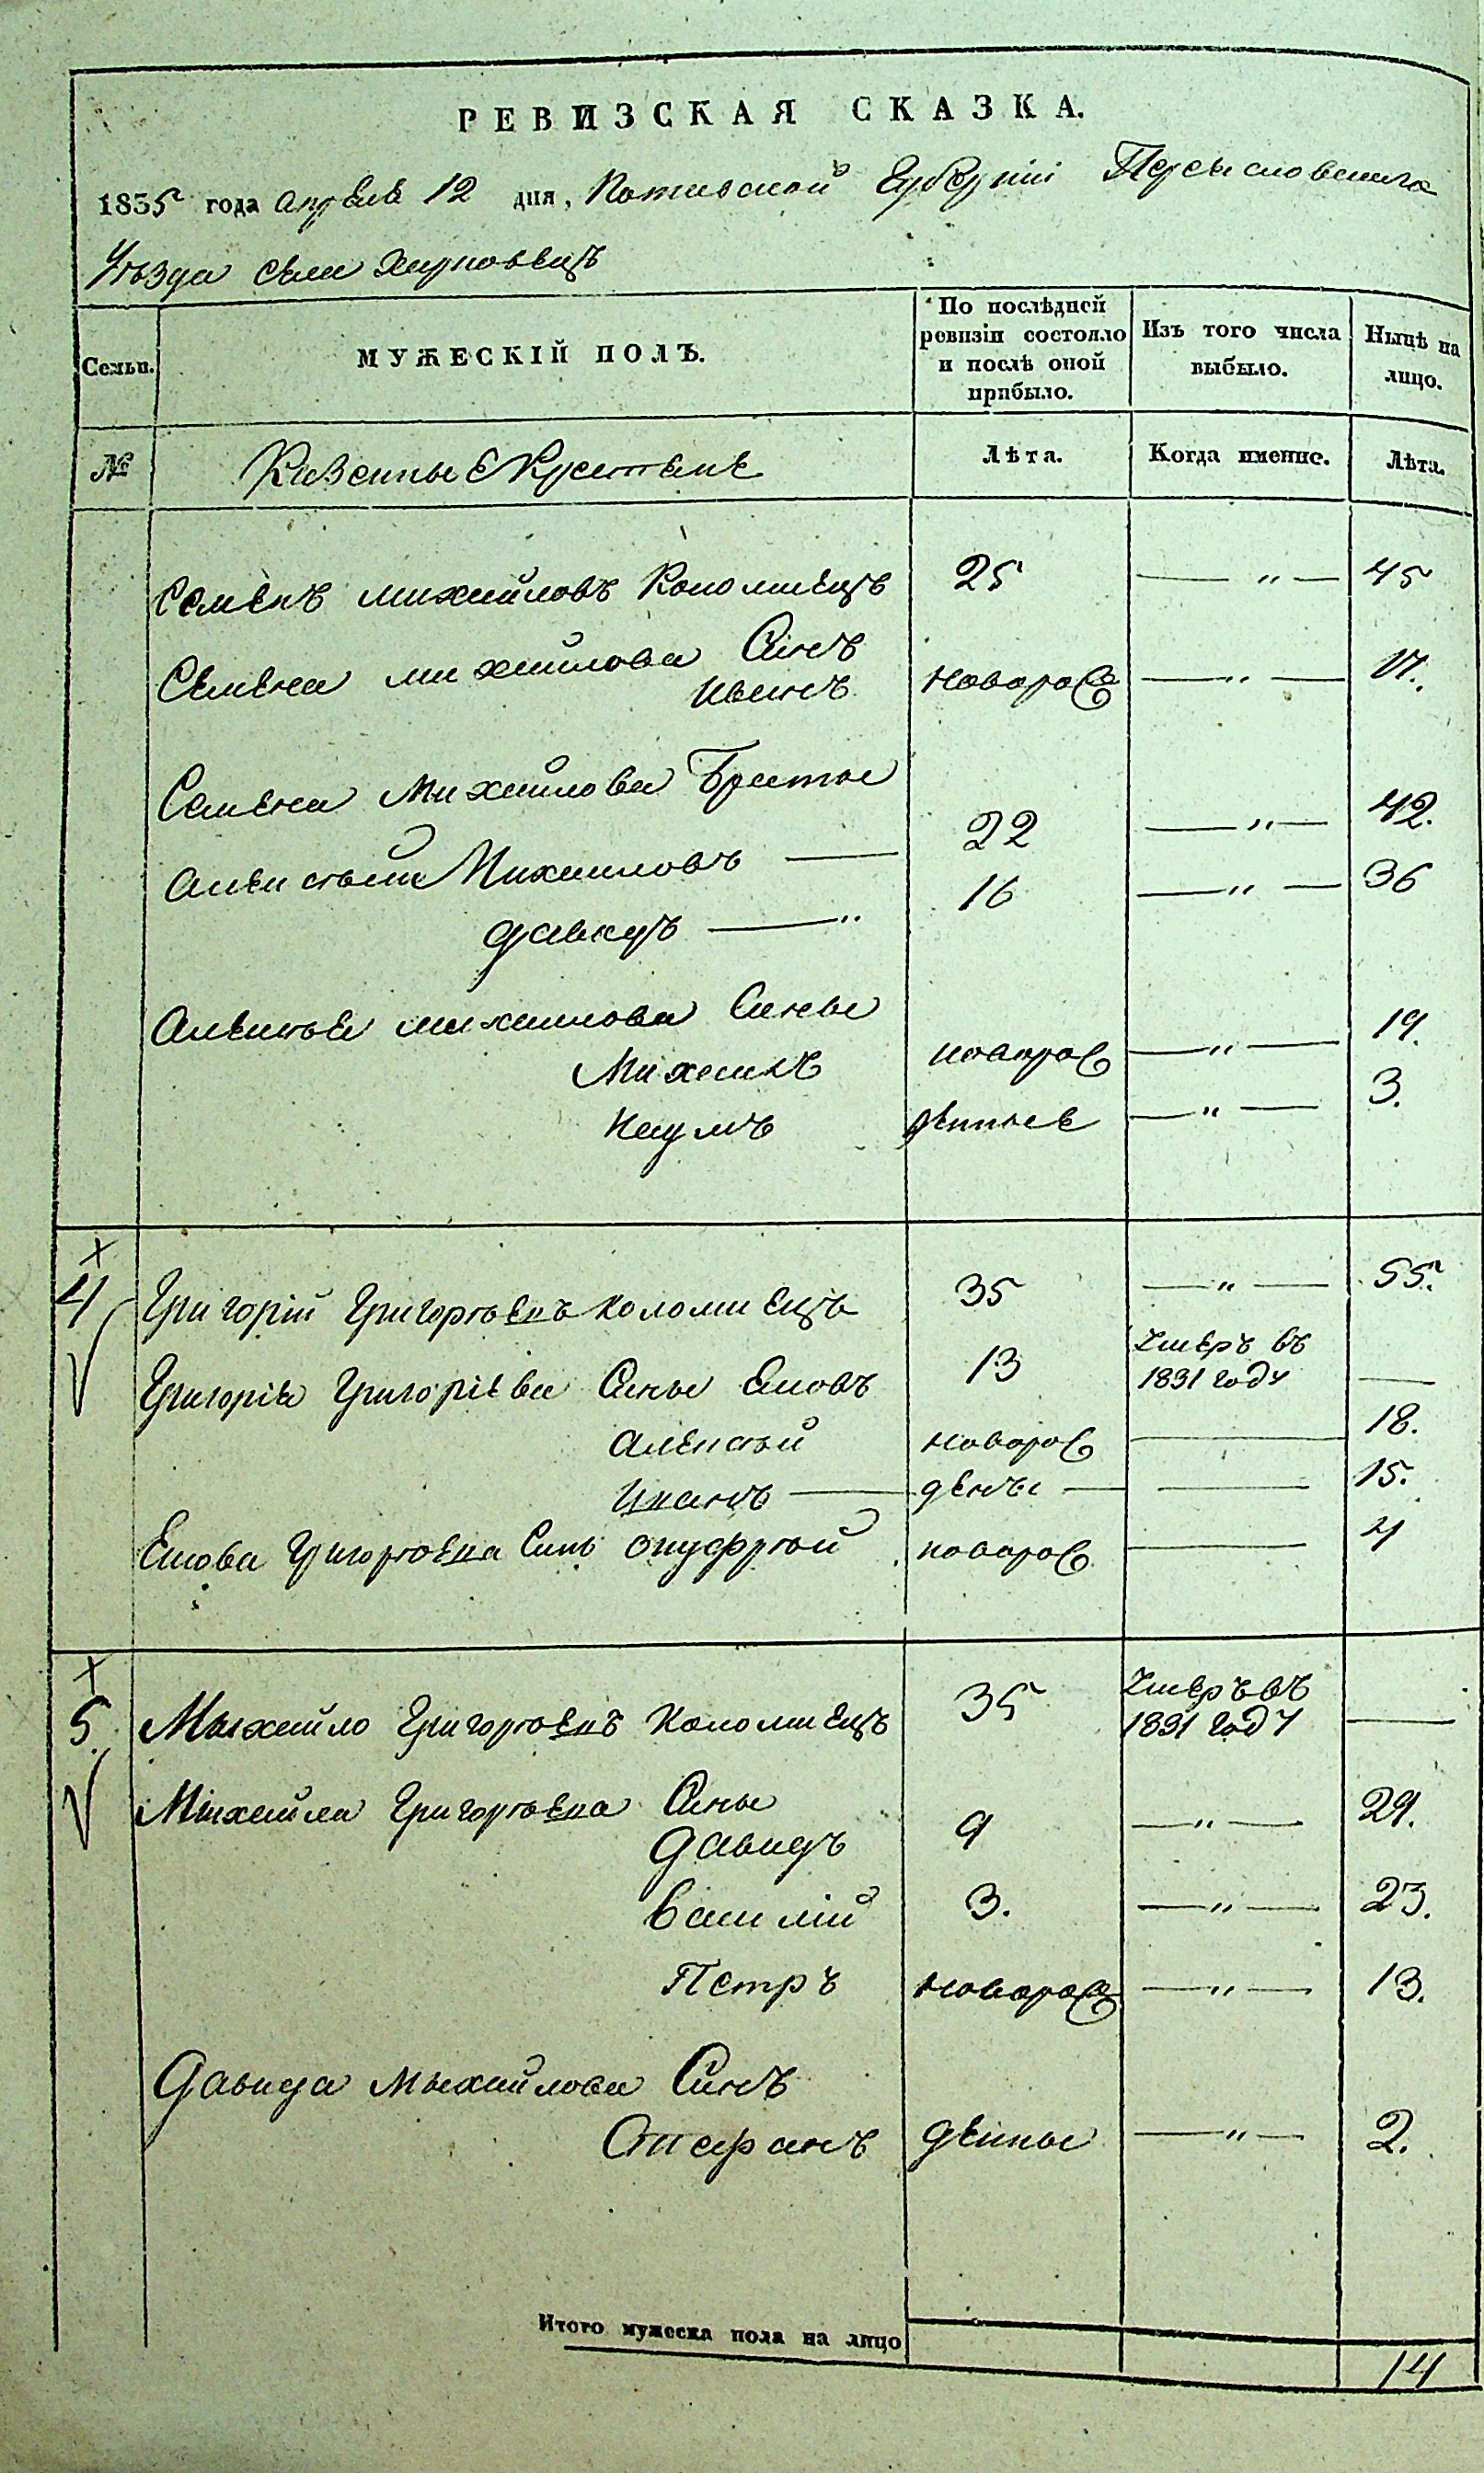 РЕВИЗСКАЯ СКАЗКА.
1835 года Апреля 12 дня, Полтавской Губерніи Переясловского
Уезда села Харьковецъ
Семьи. МУЖЕСКІЙ ПОЛЪ. По послѣдней ревизіи состояло и послѣ оной прибыло. Изъ того числа выбыло. Нынѣ на лицо.
№ Казенные Крестяне Лѣта. Когда именно. Лѣта.
Семенъ михайловъ Коломиецъ 25 — " — 45
Семена михайлова Синъ
иванъ новорож — " — 17.
Семена Михайлова Братье
Алексъй Михайловъ — 22 — " — 42.
давидъ — " 16 — " — 36
Алексъя михайлова Сины
Михаилъ новорож — " — 19.
Наумъ — " — 3.
4 Григорій Григорьевъ коломиецъ 35 — " — 55.
Григорія Григоріева Сины Емовъ 13 Умеръ въ 1831 году —
Алексъй новорож — 18.
Иванъ — — 15.
Емова Григорьева Синъ онуфрьой новорож — 4
5. Михайло Григорьевъ Коломиецъ 35 Умеръ въ 1831 году —
Михайла Григорьева Сины
Давидъ 9 — " — 29.
Василій 3. — " — 23.
Петръ новорож — " — 13.
Давида Михайлова Синъ
Стефанъ — " — 2.
Итого мужеска пола на лицо 14